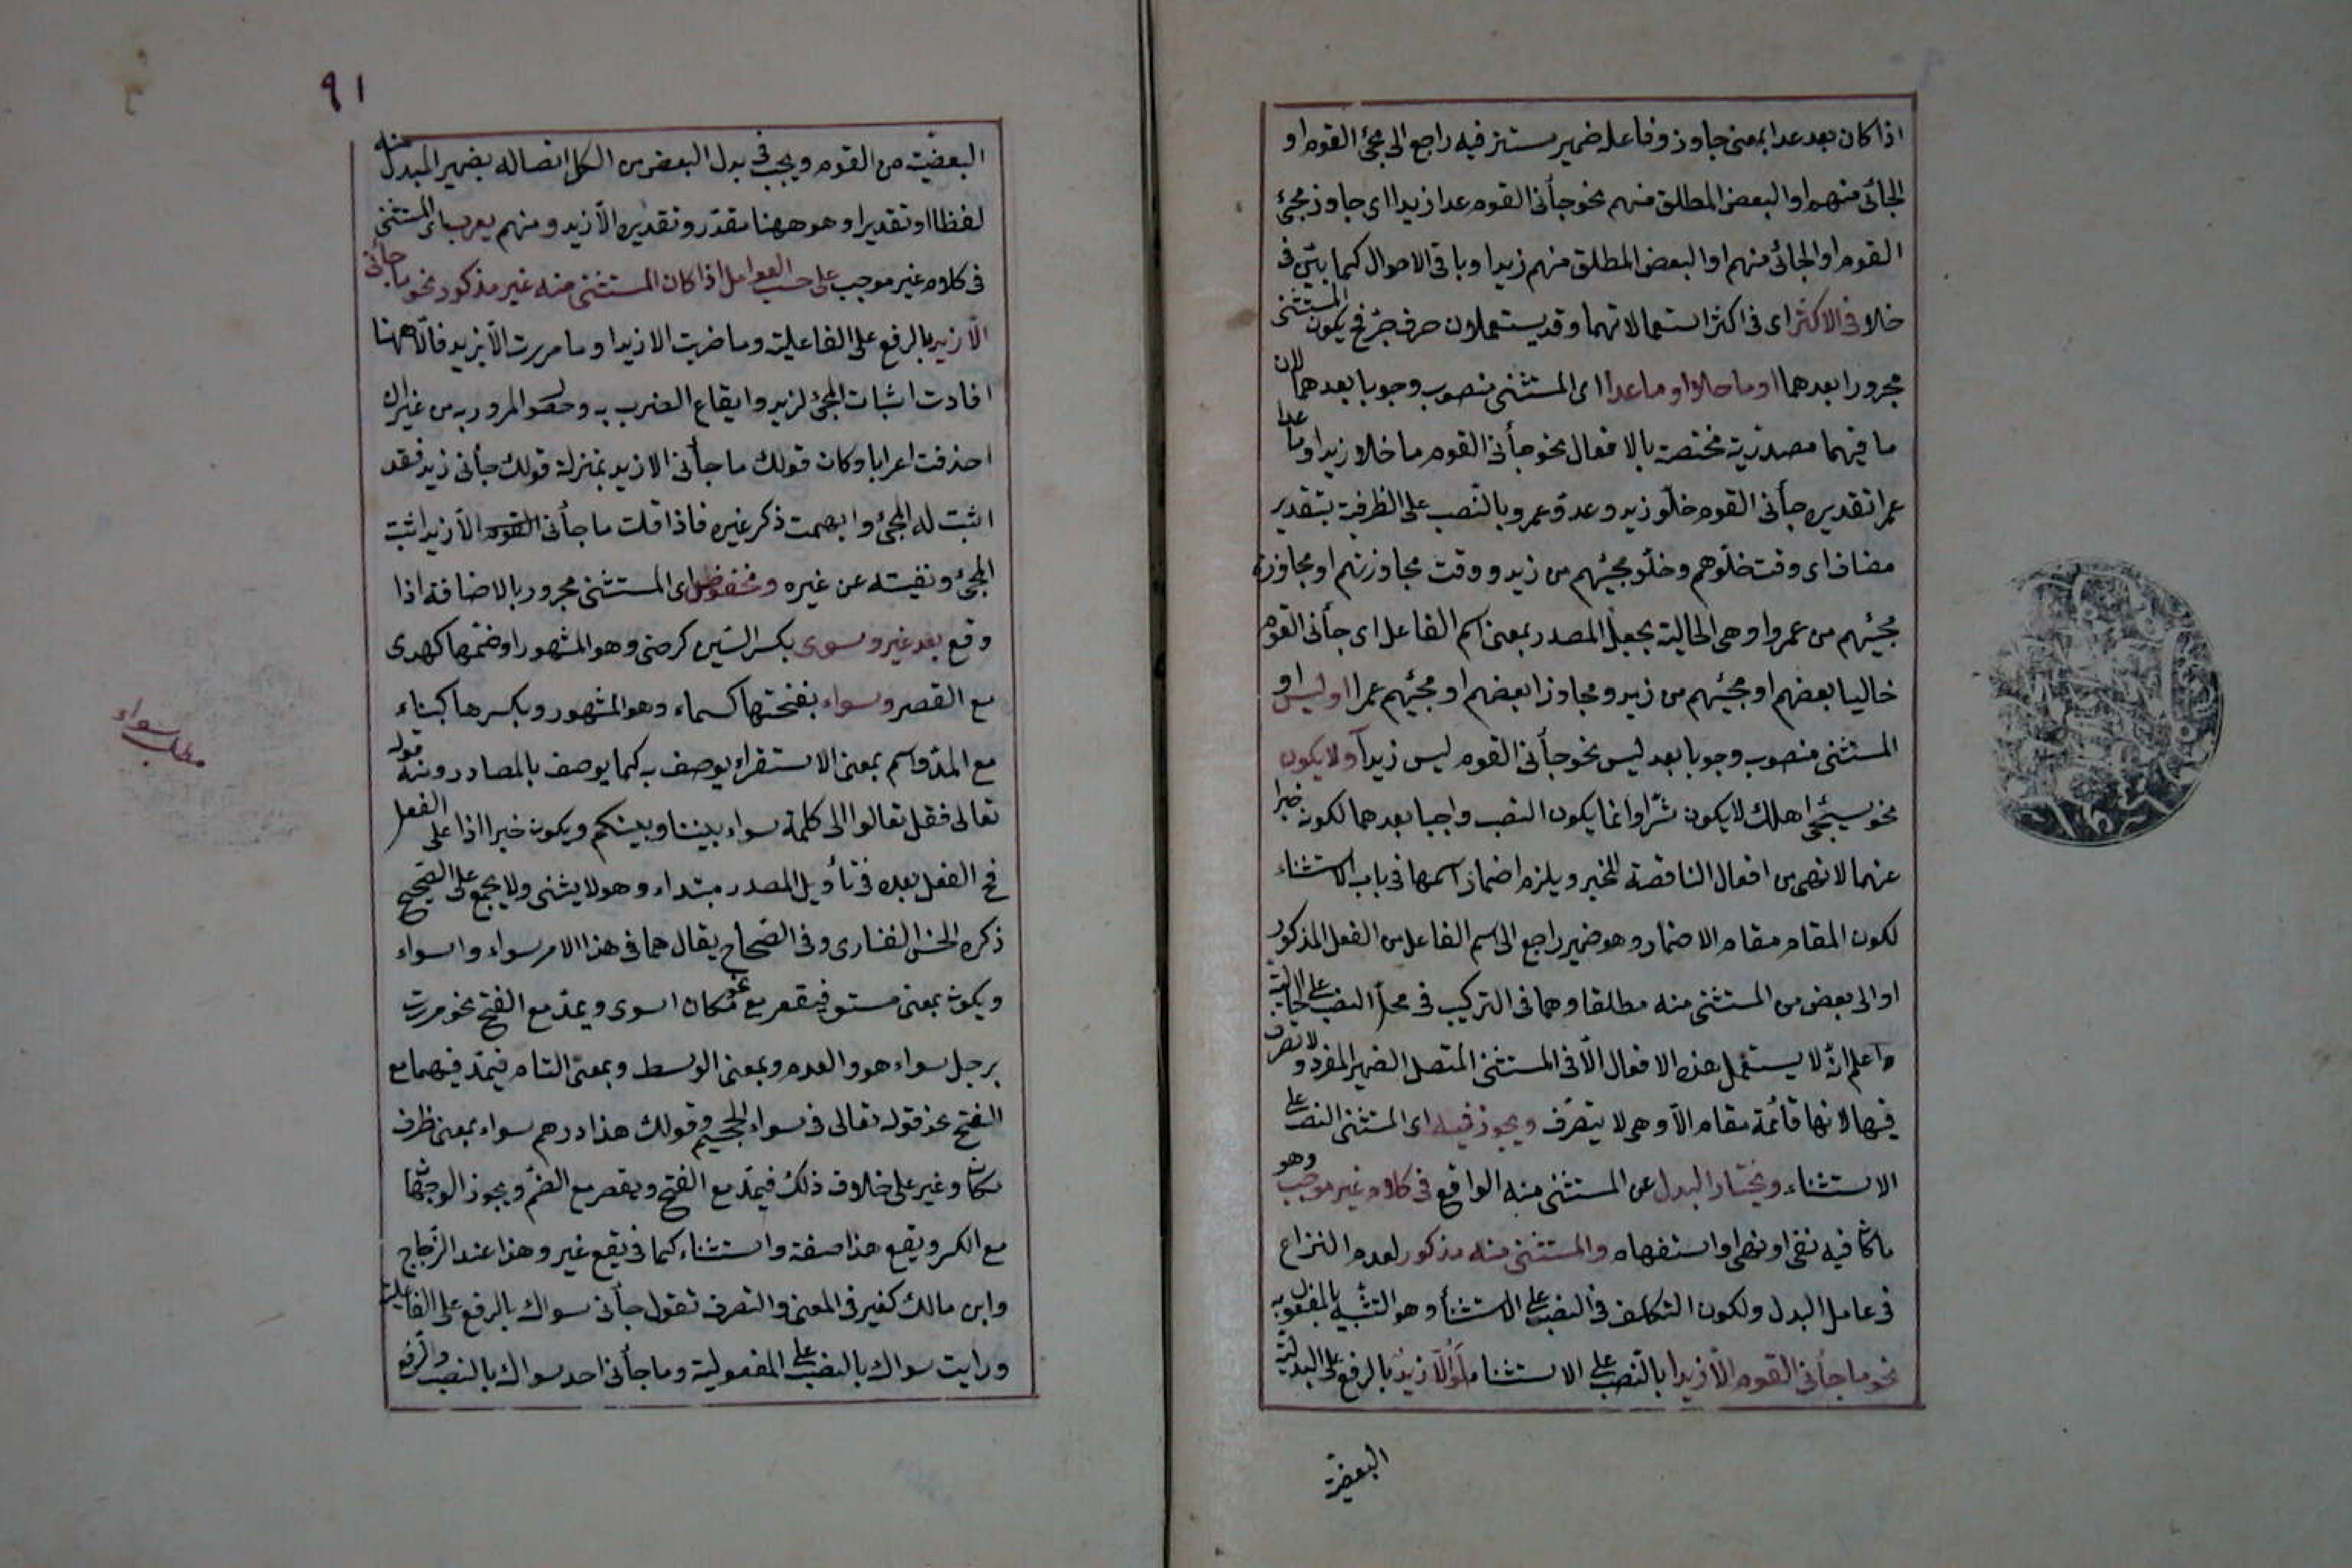 اذا كان بعد عدا بمعنى جاوز وفاعله ضمير مستتر فيه راجع الى مجئ القوم او
الجائى منهم او البعض المطلق منهم نحو جأنى القوم عدا زيدا اى جاوز مجئ
القوم او الجائى منهم او البعض المطلق منهم زيدا وباقى الاحوال كما بيّن فى
خلا فى الاكثر اى فى اكثر استعمالاتهما وقد يستعملان حرف جرّ فح يكون المستثنى
مجرورا بعدهما او ما خلا او ما عدا اى المستثنى منصوب وجوبا بعدهما لان
ما فيهما مصدريّة مختصة بالافعال نحو جأنى القوم ما خلا زيدا وما عدا
عمرا تقديره جأنى القوم خلوّ زيد وعدوّ عمرو بالنّصب على الظرفية بتقدير
مضاف اى وقت خلوّهم وخلوّ مجيئهم من زيد ووقت مجاوزتهم او مجاوزة
مجيئهم من عمرو او هى الحالية بجعل المصدر بمعنى اسم الفاعل اى جأنى القوم
خاليا بعضهم او مجيئهم من زيد ومجاوزا بعضهم او مجيئهم عمرا او ليس او
المستثنى منصوب وجوبا بعد ليس نحو جأنى القوم ليس زيدا ولا يكون
نحو سيجئ اهلك لا يكون بشرا وانما يكون النصب واجبا بعدهما لكونه خبرا
عنهما لانهما من افعال الناقصة للخبر ويلزم اضمار اسمها فى باب الاستثناء
لكون المقام مقام الاضمار وهو ضمير راجع الى اسم الفاعل من الفعل المذكور
او الى بعض من المستثنى منه مطلقا وهما فى التركيب فى محل النصب على الحالية
واعلم انّه لا يستعمل هذه الافعال الاّ فى المستثنى المتّصل الضمير المفرد ولا تصرف
فيها لانها قائمة مقام الاّ وهى لا يتصرّف ويجوز فيه اى المستثنى النصب على
الاستثناء ويختار البدل عن المستثنى منه الواقع فى كلام غير موجب وهو
ما كان فيه نفى او نهى او استفهام والمستثنى منه مذكور لعدم النزاع
فى عامل البدل ولكون التكلف فى النصب على الاستثنأ وهو التشبيه بالمفعول به
نحو ما جأنى القوم الاّ زيدا بالنّصب على الاستثنا والاّ زيدٌ بالرفع على البدليّة
البعضيّة
٩١
البعضيّة من القوم ويجب فى بدل البعض من الكل اتصاله بضمير المبدل منه
لفظا او تقديرا وهو ههنا مقدّر وتقديره الاّ زيد منهم ويعرب اى المستثنى
فى كلام غير موجب على حسب العوامل اذا كان المستثنى منه غير مذكور نحو ما جأنى
الاّ زيد بالرفع على الفاعلية وما ضربت الا زيدا وما مررت الاّ بزيد فالاّ ههنا
افادت اثبات المجئ لزيد وايقاع الضرب به وحصو المرور به من غير ان
احذفت اعرابا وكان قولك ما جأنى الا زيد بمنزلة قولك جأنى زيد فقد
اثبت له المجئ وابهمت ذكر غيره فاذا قلت ما جأنى القوم الاّ زيد اثبت
المجئ ونفيته عن غيره ومخفوض اى المستثنى مجرور بالاضافة اذا
وقع بعد غير وسوى بكسر السّين كرضى وهو المشهور او ضمّها كهدى
مع القصر وسواء بفتحتها كسماء وهو المشهور وبكسرها كبناء
مع المدّ واسم بمعنى الاستقراء يوصف به كما يوصف بالمصادر ومنه قوله
تعالى فقل تعالوا الى كلمة سواء بيننا وبينكم ويكون خبرا اذا على الفعل
فح الفعل بعده فى تأويل المصدر مبتداء وهو لا يثنى ولا يجمع على الصّحيح
ذكره الحسن الفنارى وفى الصّحاح يقال هما فى هذا الامر سواء واسواء
ويكون بمعنى مستو فيقصر مع نحو مكان اسوى ويمدّ مع الفتح نحو مررت
برجل سواء هو والعدم وبمعنى الوسط وبمعنى التام فيمدّ فيهما مع
الفتح نحو قوله تعالى فى سواء الجحيم وقولك هذا درهم سواء بمعنى ظرف
مكان وغير على خلاف ذلك فيمدّ مع الفتح ويقصر مع الضمّ ويجوز الوجهان
مع الكسر ويقع هذا صفة واستثناء كما فى يقع غير وهذا عند الزّجاج
وابن مالك كغير فى المعنى والتصرف تقول جأنى سواك بالرفع على الفاعلية
ورايت سواك بالنصب على المفعولية وما جأنى احد سواك بالنصب والرفع
مطلب سواء